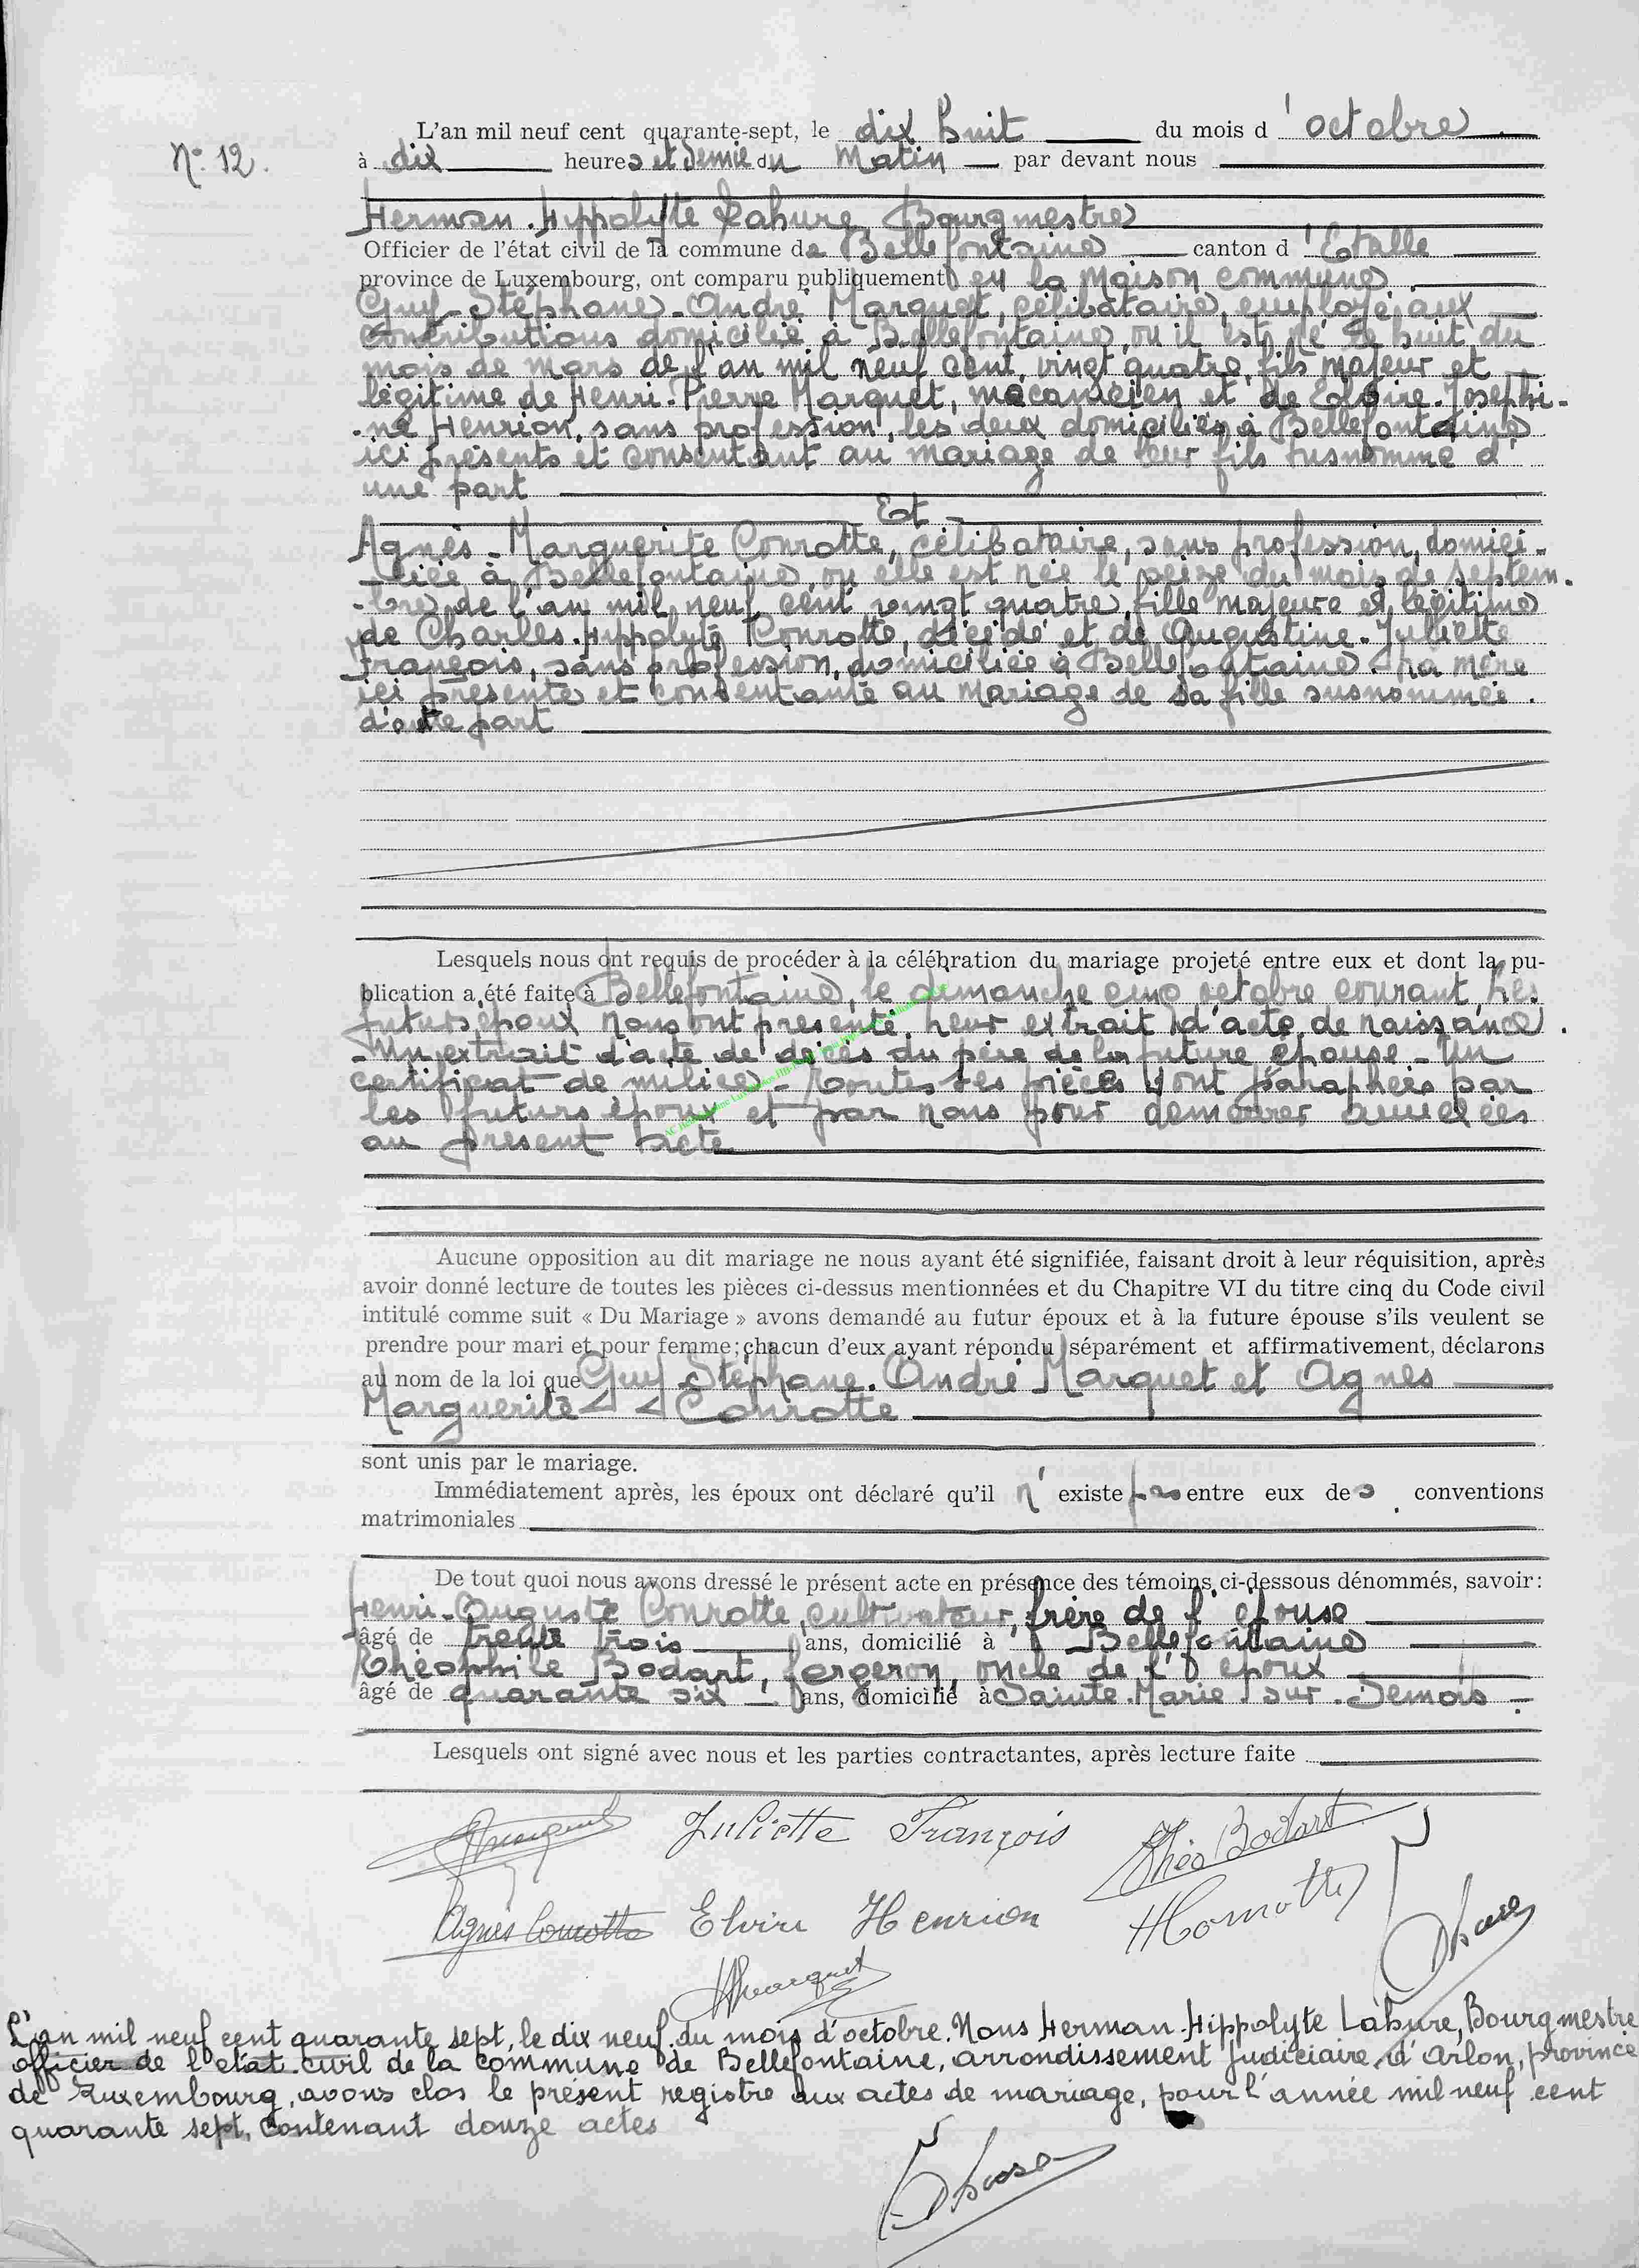 L'an mil neuf cent quarante-sept, le dix huit du mois d'octobre
N° 12.
à dix heures et demie du matin par devant nous
Herman-Hippolyte Lahure, Bourgmestre
Officier de l'état civil de la commune de Bellefontaine canton d'Etalle
province de Luxembourg, ont comparu publiquement en la maison commune
Guy-Stéphane-André Marquet, célibataire, employé aux
contributions domicilié à Bellefontaine, où il est né le huit du
mois de mars de l'an mil neuf cent vingt quatre, fils majeur et
légitime de Henri-Pierre Marquet, mécanicien et de Elvire-Josephi-
-ne Henrion, sans profession, les deux domiciliés à Bellefontaine
ici présents et consentant au mariage de leur fils susnommé d'
une part
Et
Agnès-Marguerite Conrotte, célibataire, sans profession, domici-
-liée à Bellefontaine, où elle est née le seize du mois de septem-
-bre de l'an mil neuf cent vingt quatre, fille majeure et légitime
de Charles-Hippolyte Conrotte, décédé et de Augustine-Juliette
François, sans profession, domiciliée à Bellefontaine. La mère
ici présente et consentante au mariage de sa fille susnommée.
d'autre part
Lesquels nous ont requis de procéder à la célébration du mariage projeté entre eux et dont la pu-
blication a été faite à Bellefontaine, le dimanche cinq octobre courant. Les
futurs époux nous ont présenté leur extrait d'acte de naissance.
- Un extrait d'acte de décès du père de la future épouse - Un
certificat de milice - Toutes les pièces sont paraphées par
les futurs époux et par nous pour demeurer annexées
au présent acte
Aucune opposition au dit mariage ne nous ayant été signifiée, faisant droit à leur réquisition, après
avoir donné lecture de toutes les pièces ci-dessus mentionnées et du Chapitre VI du titre cinq du Code civil
intitulé comme suit « Du Mariage » avons demandé au futur époux et à la future épouse s'ils veulent se
prendre pour mari et pour femme; chacun d'eux ayant répondu séparément et affirmativement, déclarons
au nom de la loi que Guy Stéphane-André Marquet et Agnes
Marguerite Conrotte
sont unis par le mariage.
Immédiatement après, les époux ont déclaré qu'il n'existe pas entre eux des conventions
matrimoniales
De tout quoi nous avons dressé le présent acte en présence des témoins ci-dessous dénommés, savoir:
Henri-Auguste Conrotte, cultivateur, frère de l'épouse
âgé de trente trois ans, domicilié à Bellefontaine
Théophile Bodart, forgeron, oncle de l'époux
âgé de quarante six ans, domicilié à Sainte-Marie-sur-Semois
Lesquels ont signé avec nous et les parties contractantes, après lecture faite
GMarquet Juliette François Théo Bodart
Agnès Conrotte Elvire Henrion HConrotte
HMarquet
L'an mil neuf cent quarante sept, le dix neuf du mois d'octobre. Nous Herman-Hippolyte Lahure, Bourgmestre
officier de l'état civil de la commune de Bellefontaine, arrondissement judiciaire d'Arlon, province
de Luxembourg, avons clos le présent registre aux actes de mariage, pour l'année mil neuf cent
quarante sept, contenant douze actes